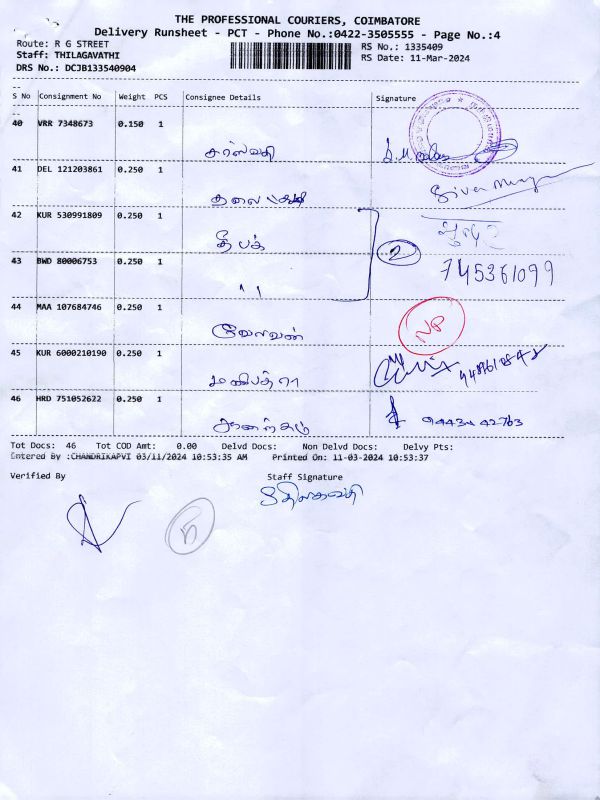 THE PROFESSIONAL COURIERS, COIMBATORE
Delivery Runsheet - PCT - Phone No.:0422-3505555 - Page No.:4
Route: R G STREET
Staff: THILAGAVATHI
DRS No.: DCJB133540904
RS No.: 1335409
RS Date: 11-Mar-2024
S No Consignment No Weight PCS Consignee Details Signature
40 VRR 7348673 0.150 1
சரஸ்வதி
41 DEL 121203861 0.250 1
42 KUR 530991809 0.250 1
தீபக்
43 BWD 80006753 0.250 1
" 2 745361099
44 MAA 107684746 0.250 1
வேலவன் NP
45 KUR 6000210190 0.250 1
46 HRD 751052622 0.250 1
Tot Docs: 46 Tot COD Amt: 0.00 Delvd Docs: Non Delvd Docs: Delvy Pts:
Entered By :CHANDRIKAPVI 03/11/2024 10:53:35 AM Printed On: 11-03-2024 10:53:37
Verified By Staff Signature